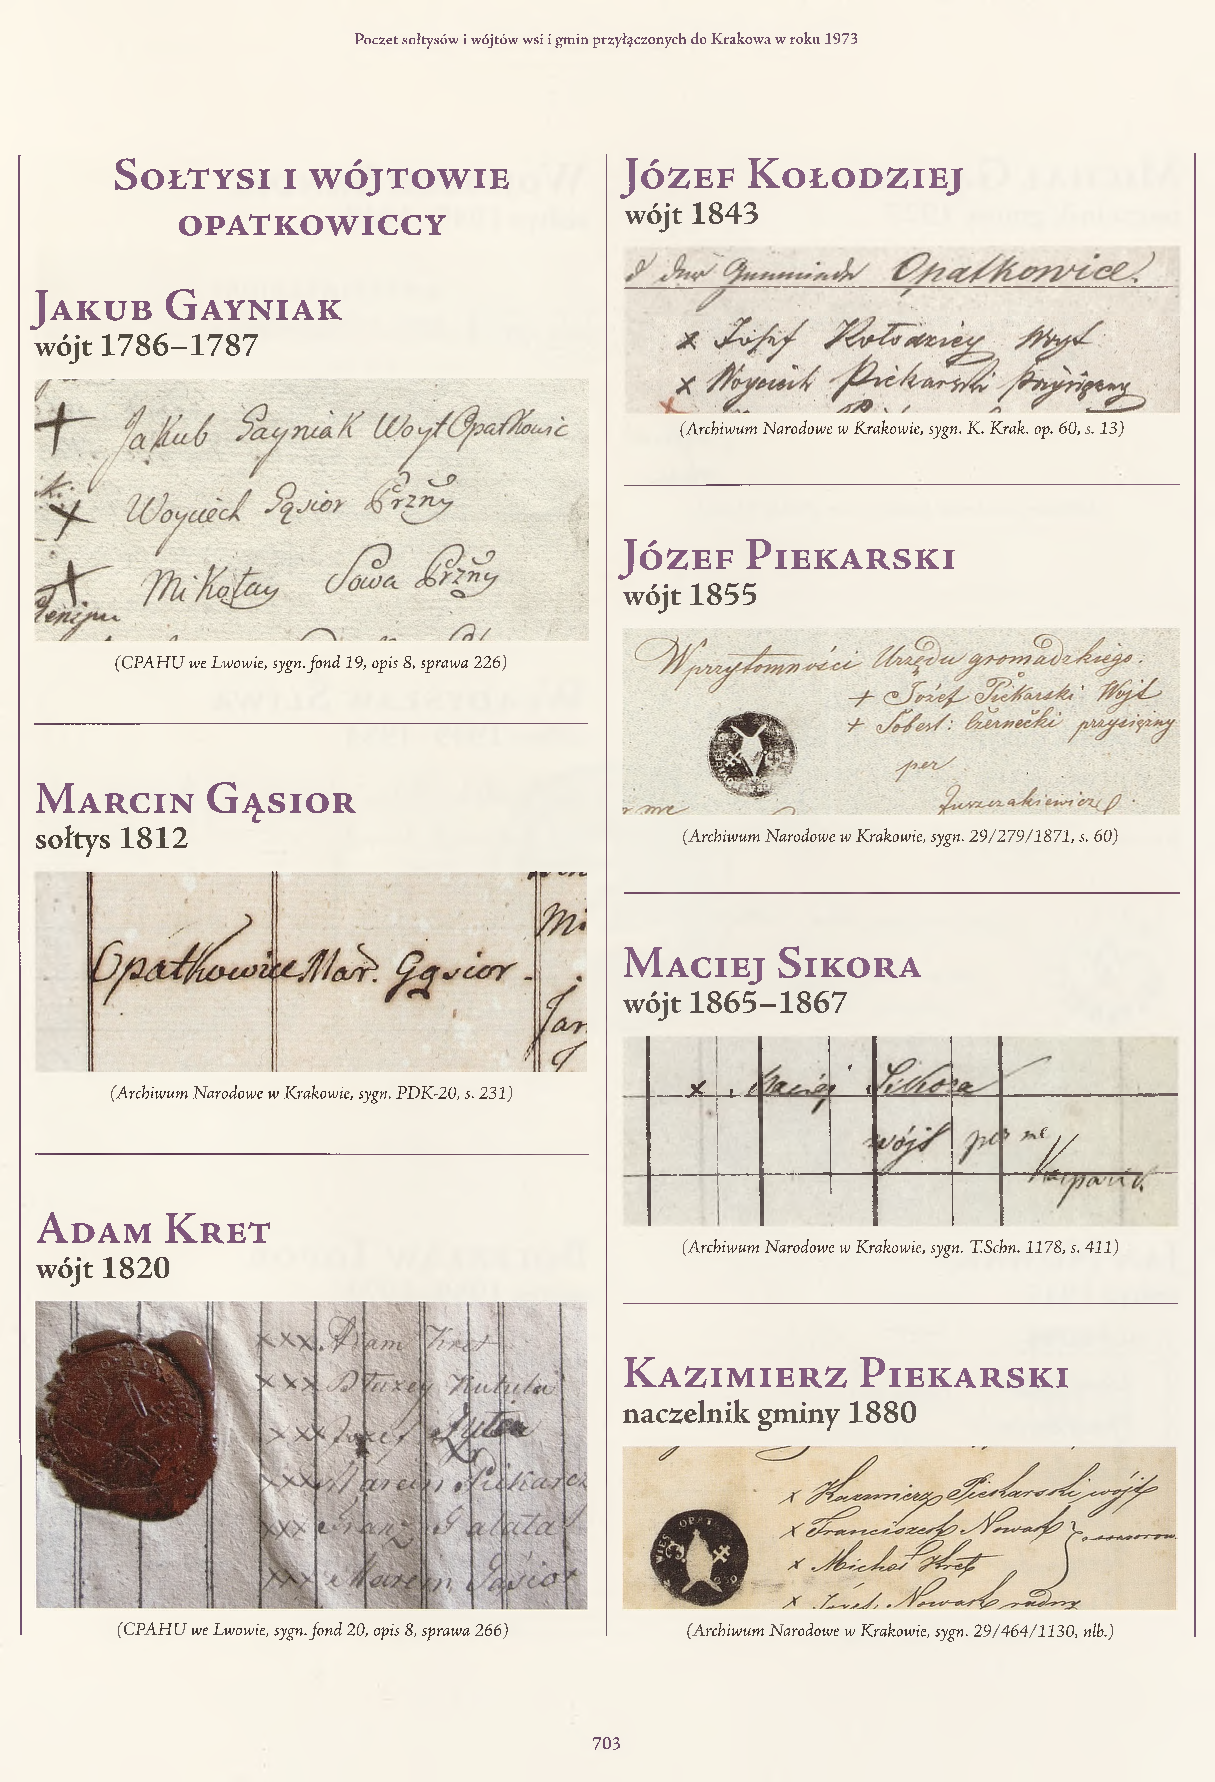 Poczet sołtysów i wójtów wsi i gmin przyłączonych do Krakowa w roku 1973
Sołtysi i wójtowie
opatkowiccy
Jakub Gayniak
wójt 1786–1787
Jakub Gayniak Woyt Opatkowic
Woyciech Gąsior Przny
Mikołay Sowa Przny
(CPAHU we Lwowie, sygn. fond 19, opis 8, sprawa 226)
Marcin Gąsior
sołtys 1812
Opatkowice Mar. Gąsior
(Archiwum Narodowe w Krakowie, sygn. PDK-20, s. 231)
Adam Kret
wójt 1820
xxx Adam Kret
xxx Błażey
xxx Jozef
xxx Marcin
xxx Franz Galata
xxx Marcin Gąsior
(CPAHU we Lwowie, sygn. fond 20, opis 8, sprawa 266)
Józef Kołodziej
wójt 1843
der Gemeinde Opatkowice
x Josef Kołodziey Woyt
x Woyciech Piekarski Przysiężny
(Archiwum Narodowe w Krakowie, sygn. K. Krak. op. 60, s. 13)
Józef Piekarski
wójt 1855
W przytomności Urzędu gromadzkiego.
+ Józef Piekarski Wojt
+ Sobest: Czernecki przysiężny
per
Juszczakiewicz
(Archiwum Narodowe w Krakowie, sygn. 29/279/1871, s. 60)
Maciej Sikora
wójt 1865–1867
x Maciej Sikora
wójt per me
(Archiwum Narodowe w Krakowie, sygn. T.Schn. 1178, s. 411)
Kazimierz Piekarski
naczelnik gminy 1880
x Kazimierz Piekarski wójt
x Franciszek Nowak
x Michał Kret
x Józef Nowak radny
(Archiwum Narodowe w Krakowie, sygn. 29/464/1130, nlb.)
703